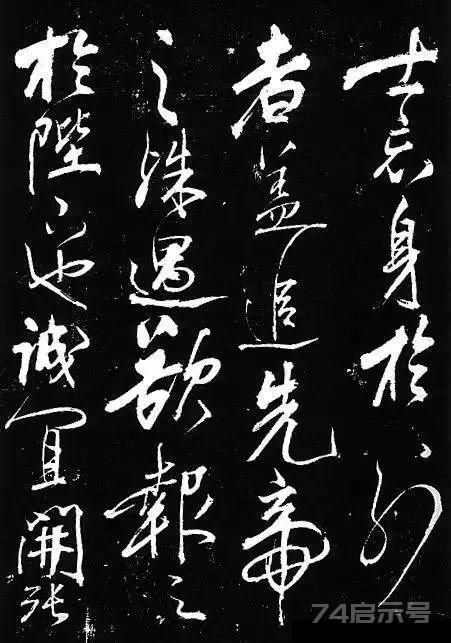 士忘身於外
者盖追先帝
之殊遇欲報之
於陛下也誠宜開張
74启示号